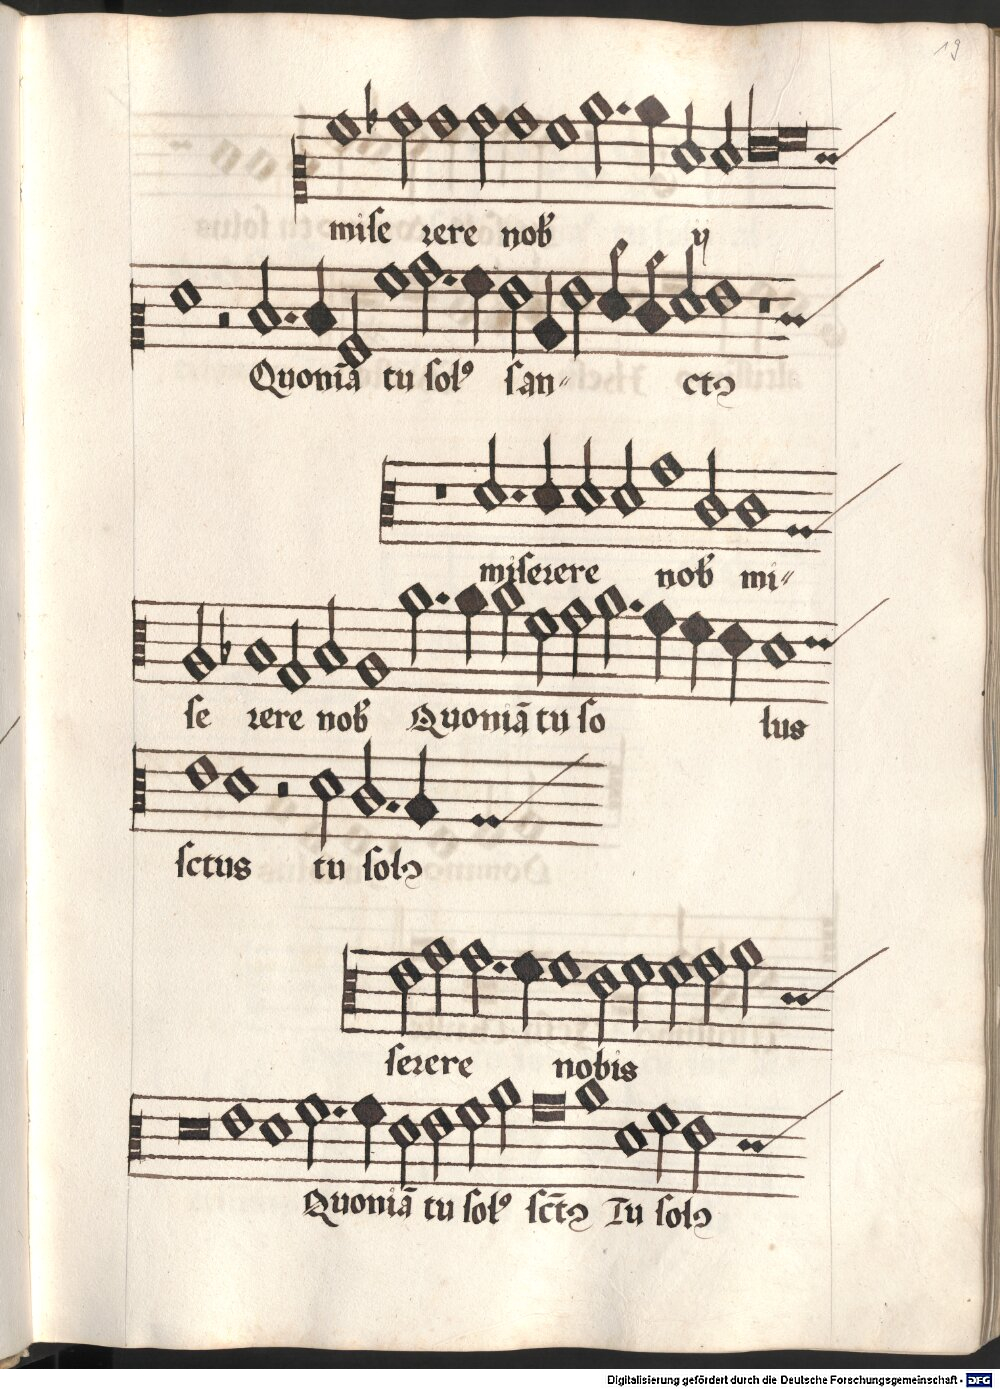 19
miſe rere nob̄
Quoniā tu ſolꝰ ſan- ctꝰ
miſerere nob̄ mi-
ſe rere nob̄ Quoniā tu ſo lus
ſctus tu ſolꝰ
ſerere nobis
Quoniā tu ſolꝰ ſct̄ꝰ Tu ſolꝰ
Digitalisierung gefördert durch die Deutsche Forschungsgemeinschaft - DFG